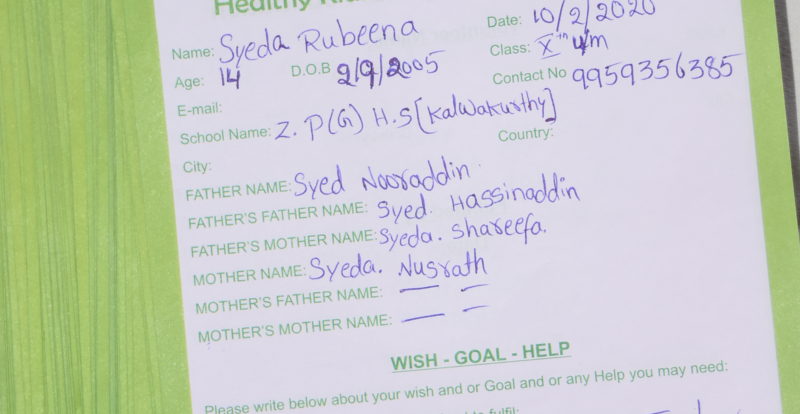 Healthy
Date: 10/2/2020
Name: Syeda Rubeena
Class: X th u/m
Age: 14 D.O.B 2/9/2005
Contact No 9959356385
E-mail:
School Name: Z. P(G) H.S [Kalwakurthy]
City: Country:
FATHER NAME: Syed Nooraddin
FATHER'S FATHER NAME: Syed. Hassinaddin
FATHER'S MOTHER NAME: Syeda. Shareefa.
MOTHER NAME: Syeda. Nusrath
MOTHER'S FATHER NAME: — —
MOTHER'S MOTHER NAME: — —
WISH - GOAL - HELP
Please write below about your wish and or Goal and or any Help you may need:
fulfil: